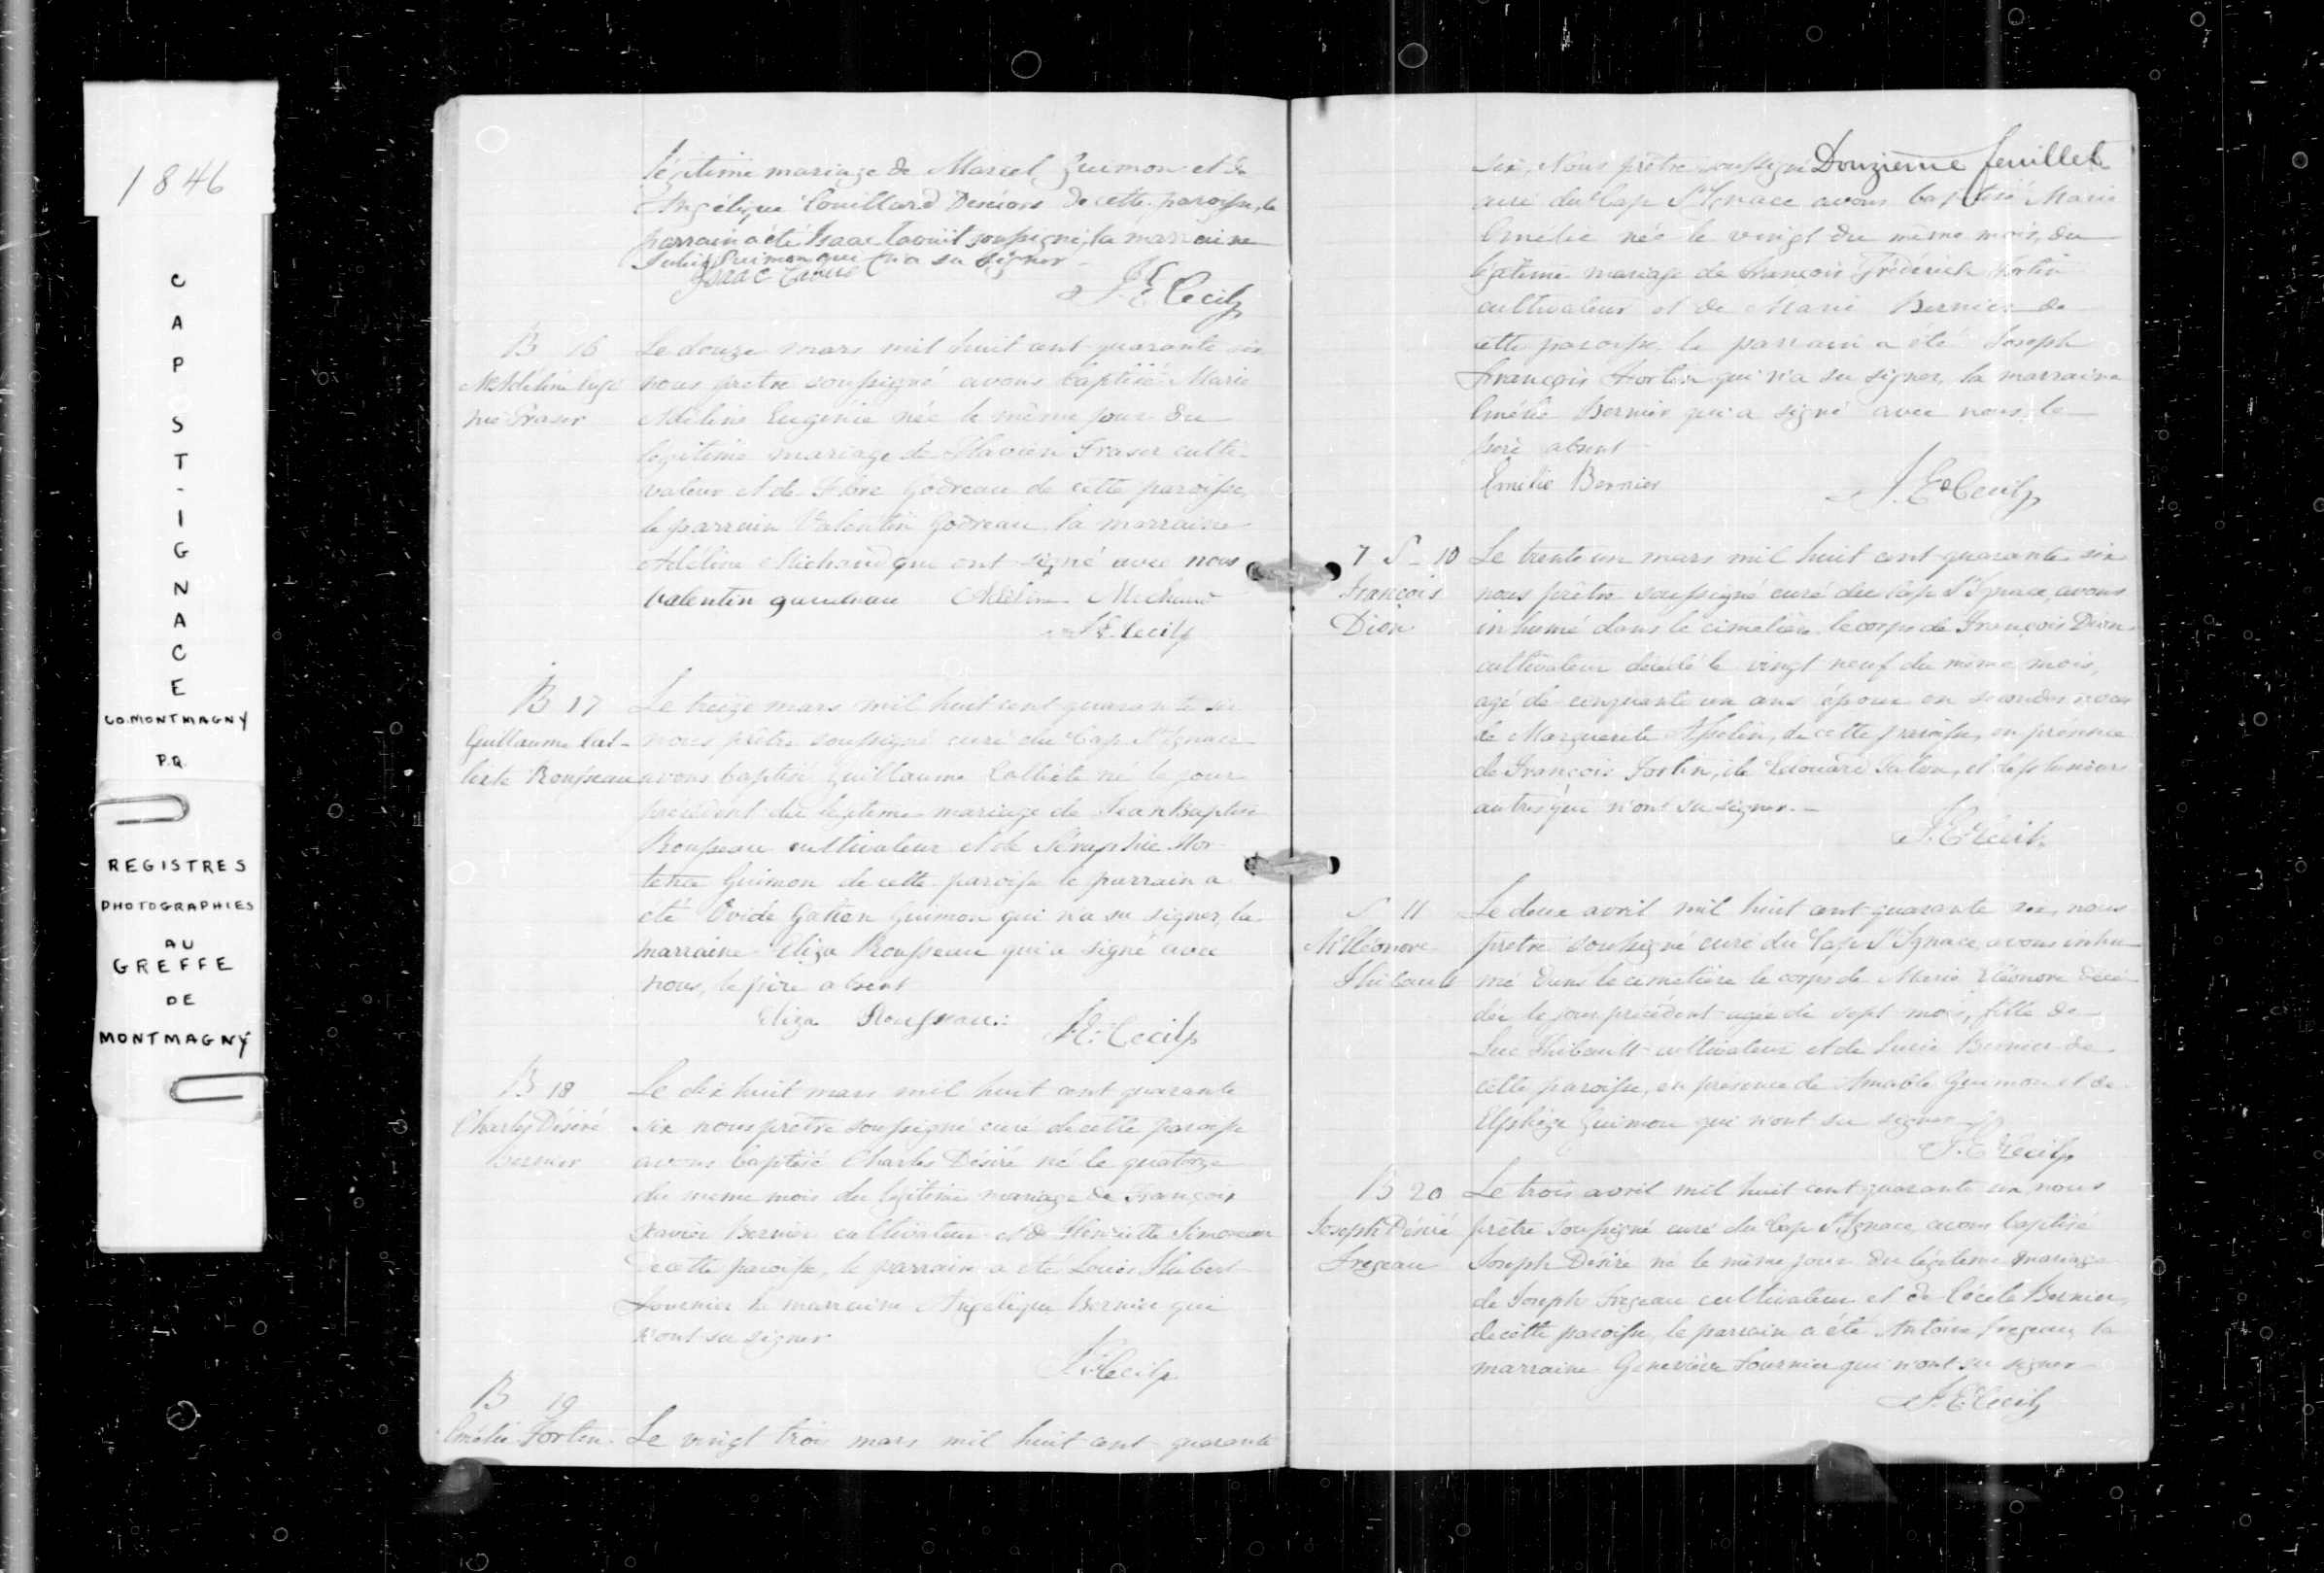 1846
CAP ST-IGNACE
CO. MONTMAGNY
P.Q.
REGISTRES
PHOTOGRAPHIES
AU
GREFFE
DE
MONTMAGNY
légitime mariage de Marcel Guimon et de
Angélique Couillard Després de cette paroisse, le
parrain a été Isaac soussigné, la marraine
Julie Guimon qui n'a su signer
Isaac
J. E. Cecil ptre
B 16
M. Adeline Eugé
nie Fraser
Le douze mars mil huit cent quarante six
nous prêtre soussigné avons baptisé Marie
Adeline Eugenie née le même jour du
légitime mariage de Flavien Fraser culti-
vateur et de Flore Godreau de cette paroisse,
le parrain Valentin Godreau, la marraine
Adeline Michaud qui ont signé avec nous
Valentin Adeline Michaud
J. E. Cecil ptre
B 17
Guillaume Cal-
lixte Rousseau
Le treize mars mil huit cent quarante six
nous prêtre soussigné curé du Cap St Ignace
avons baptisé Guillaume Callixte né le jour
précédent du légitime mariage de Jean Baptiste
Rousseau cultivateur et de Séraphie Hor
tence Guimon de cette paroisse le parrain a
été Ovide Gatien Guimon qui n'a su signer, la
marraine Eliza Rousseau qui a signé avec
nous, le père absent
Eliza Rousseau
J. E. Cecil ptre
B 18
Charles Désiré
Bernier
Le dix huit mars mil huit cent quarante
six nous prêtre soussigné curé de cette paroisse
avons baptisé Charles Désiré né le quatorze
du meme mois du légitime mariage de François
Xavier Bernier cultivateur et de Henriette Simoneau
de cette paroisse, le parrain a été Louis Hubert
Fournier la marraine Angélique Bernier qui
n'ont su signer
J. E. Cecil ptre
B 19
Emélie Fortin
Le vingt trois mars mil huit cent quarante
Douzième feuillet
six, Nous prêtre soussigné
curé du Cap St Ignace avons baptisé Marie
Emélie née le vingt du même mois, du
légitime mariage de François Frédérick Fortin
cultivateur et de Marie Bernier de
cette paroisse, le parrain a été Joseph
François Fortin qui n'a su signer, la marraine
Emélie Bernier qui a signé avec nous, le
père absent
Emélie Bernier
J. E. Cecil ptre
7 S - 10
François
Dion
Le trente un mars mil huit cent quarante six
nous prêtre soussigné curé du Cap St Ignace, avons
inhumé dans le cimetière le corps de François Dion
cultivateur décédé le vingt neuf du même mois,
agé de cinquante un ans époux en secondes noces
de Marguerite Asselin, de cette paroisse, en présence
de François Fortin, de Edouard et de plusieurs
autres qui n'ont su signer.
J. E. Cecil ptre
S 11
M. Eléonore
Thibault
Le deux avril mil huit cent quarante six, nous
prêtre soussigné curé du Cap St Ignace avons inhu
mé dans le cimetière le corps de Marie Eléonore décé
dée le jour précédent agée de sept mois, fille de
Luc Thibault cultivateur et de Lucie Bernier de
cette paroisse, en présence de Amable Guimon et de
Elzéar Guimon qui n'ont su signer
J. E. Cecil ptre
B 20
Joseph Désiré
Fregeau
Le trois avril mil huit cent quarante six nous
prêtre soussigné curé du Cap St Ignace avons baptisé
Joseph Désiré né le même jour du légitime mariage
de Joseph Fregeau cultivateur et de Cécile Bernier,
de cette paroisse, le parrain a été Antoine Fregeau, la
marraine Geneviève Fournier qui n'ont su signer
J. E. Cecil ptre